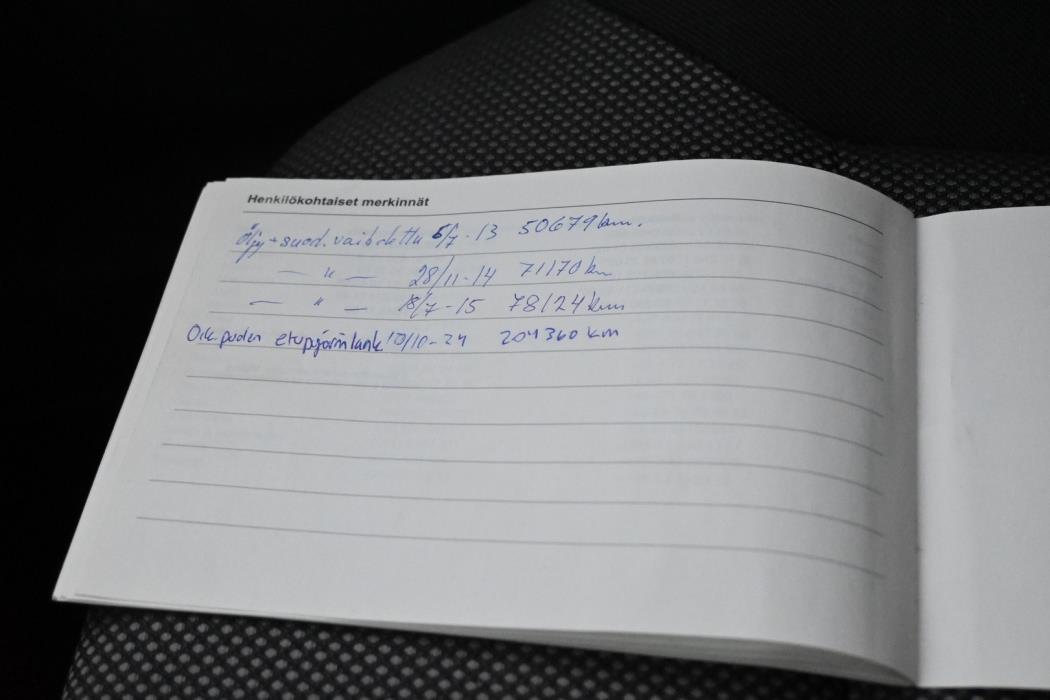 Henkilökohtaiset merkinnät
Öljy + suod. vaihdettu 5/7 - 13 50679 km.
— " — 28/11 - 14 71170 km
— " — 18/7 - 15 78124 km
Oik. puolen etupyörän lank. 10/10 - 24 204360 km